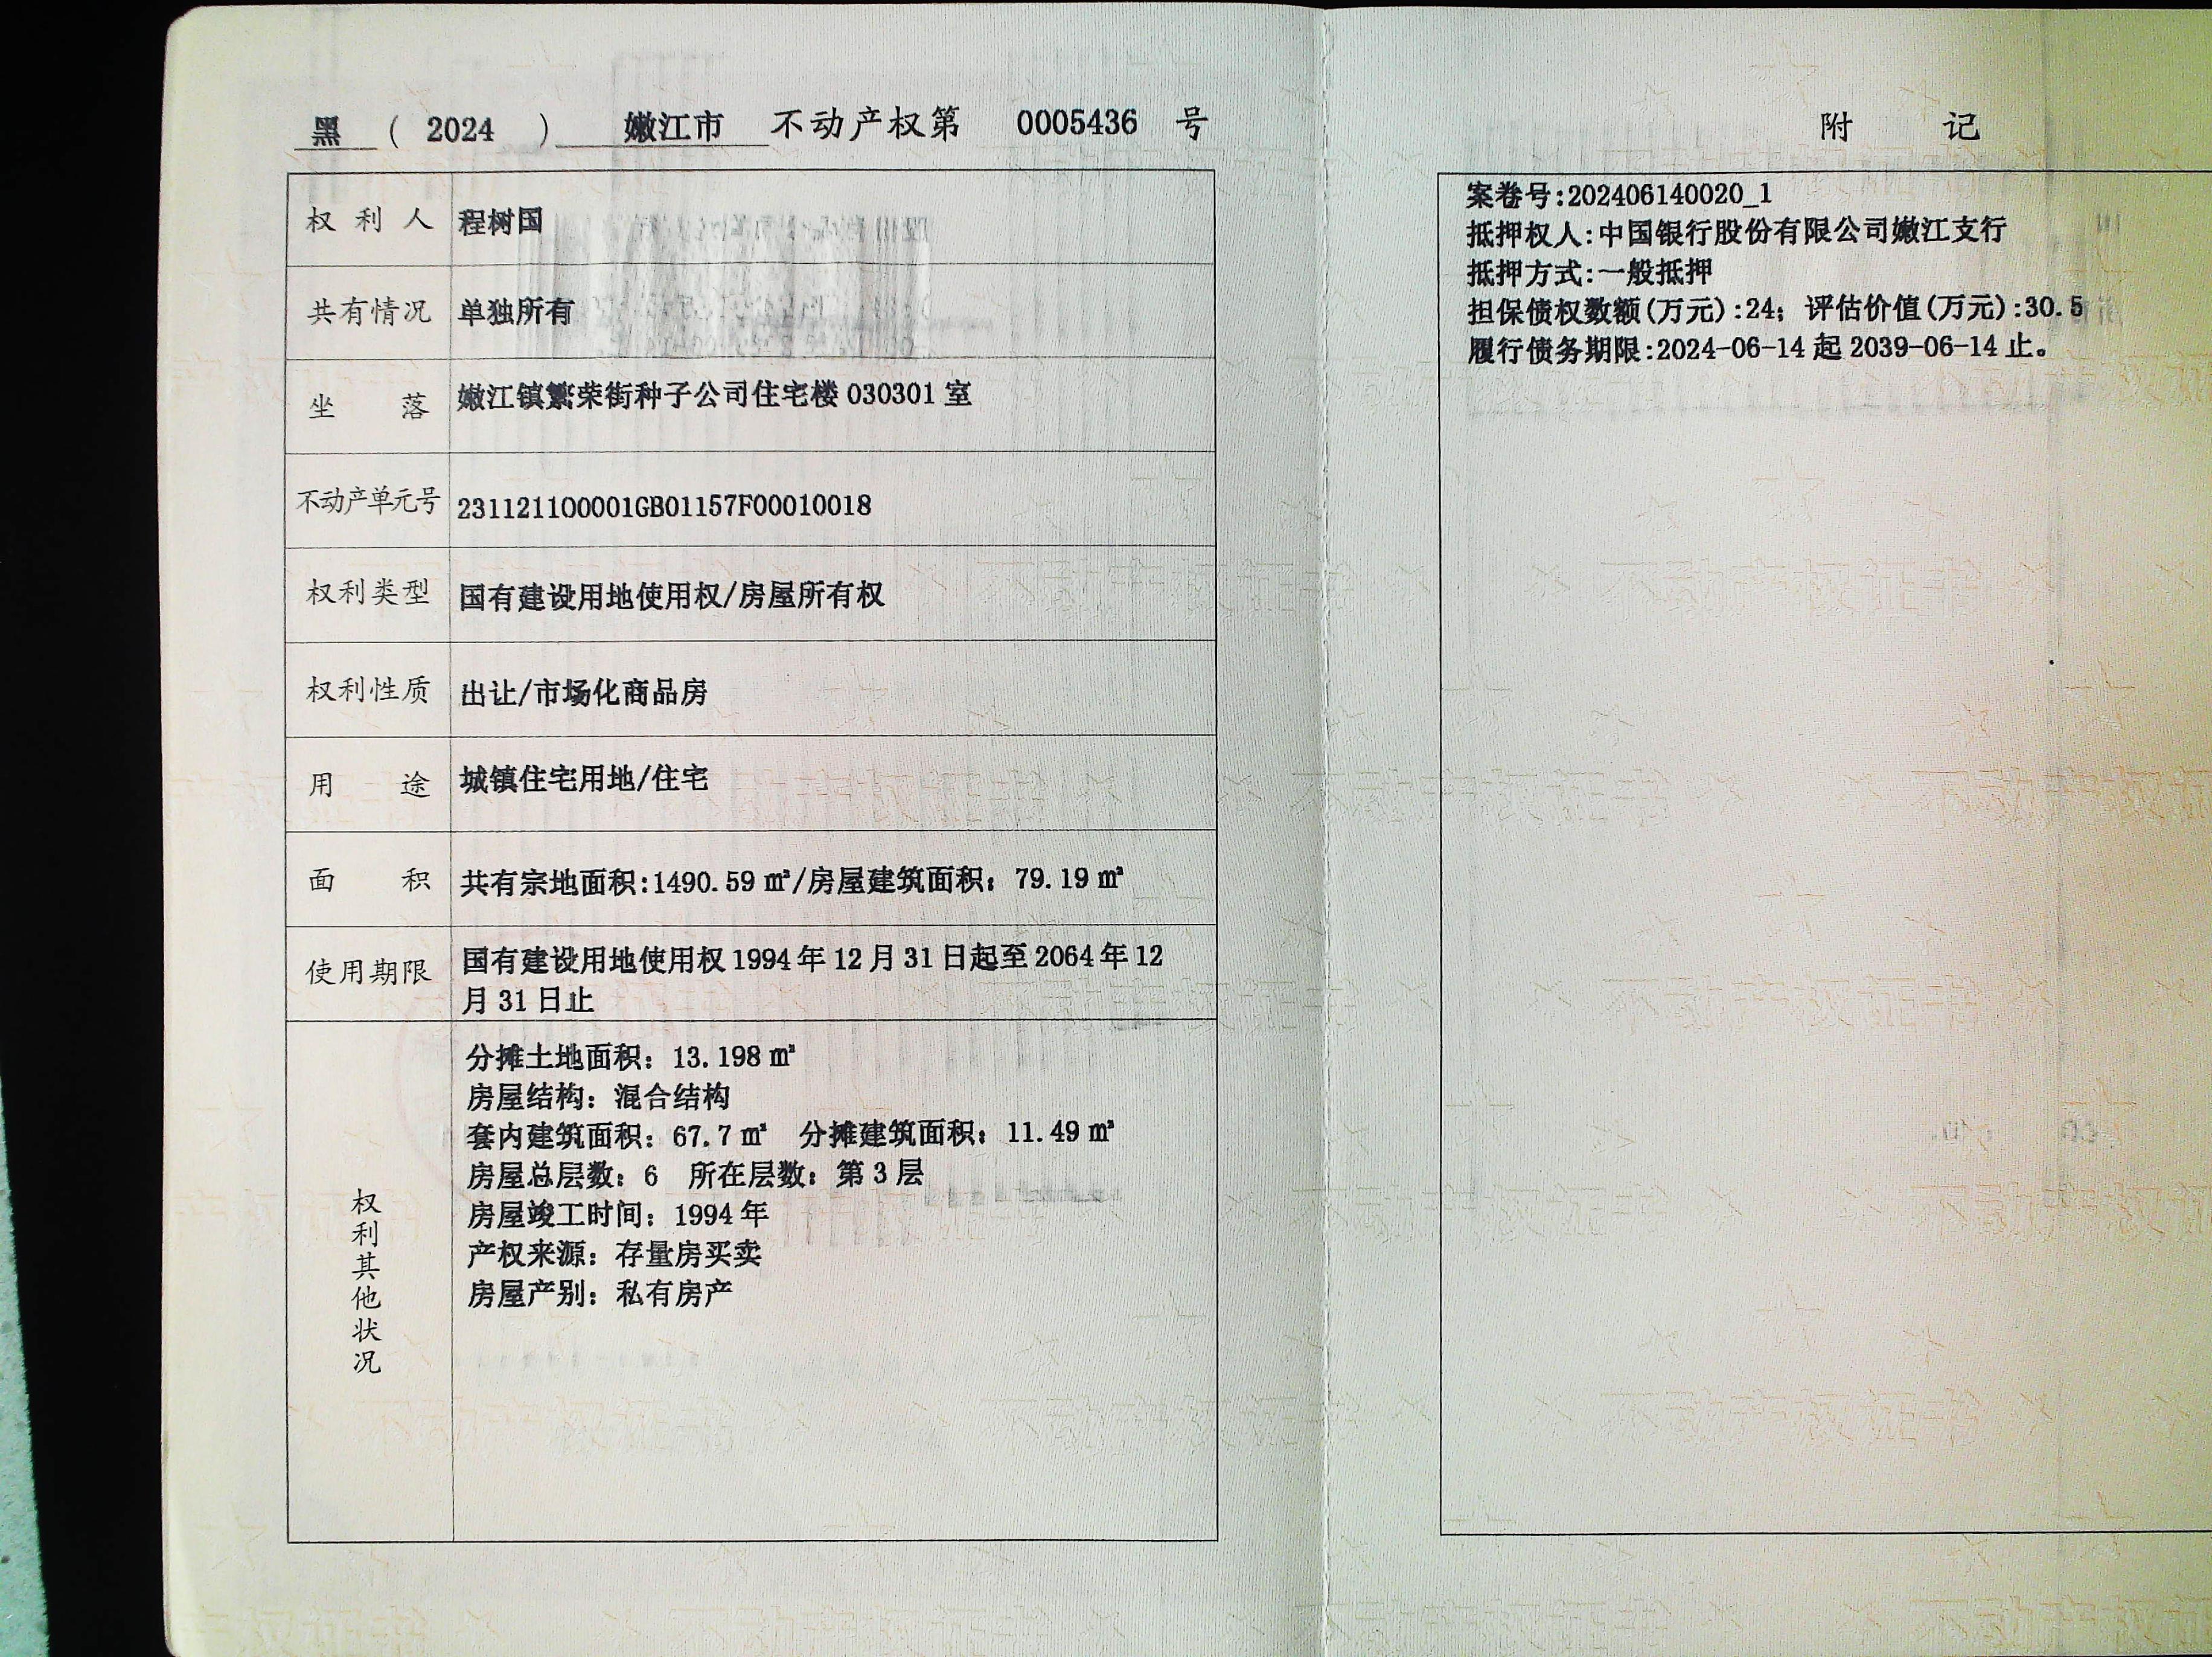 黑 ( 2024 ) 嫩江市 不动产权第 0005436 号
权利人 程树国
共有情况 单独所有
坐落 嫩江镇繁荣街种子公司住宅楼 030301 室
不动产单元号 231121100001GB01157F00010018
权利类型 国有建设用地使用权/房屋所有权
权利性质 出让/市场化商品房
用途 城镇住宅用地/住宅
面积 共有宗地面积:1490.59 ㎡/房屋建筑面积：79.19 ㎡
使用期限 国有建设用地使用权 1994 年 12 月 31 日起至 2064 年 12
月 31 日止
权利其他状况
分摊土地面积：13.198 ㎡
房屋结构：混合结构
套内建筑面积：67.7 ㎡ 分摊建筑面积：11.49 ㎡
房屋总层数：6 所在层数：第 3 层
房屋竣工时间：1994 年
产权来源：存量房买卖
房屋产别：私有房产
附记
案卷号:202406140020_1
抵押权人:中国银行股份有限公司嫩江支行
抵押方式:一般抵押
担保债权数额(万元):24；评估价值(万元):30.5
履行债务期限:2024-06-14 起 2039-06-14 止。